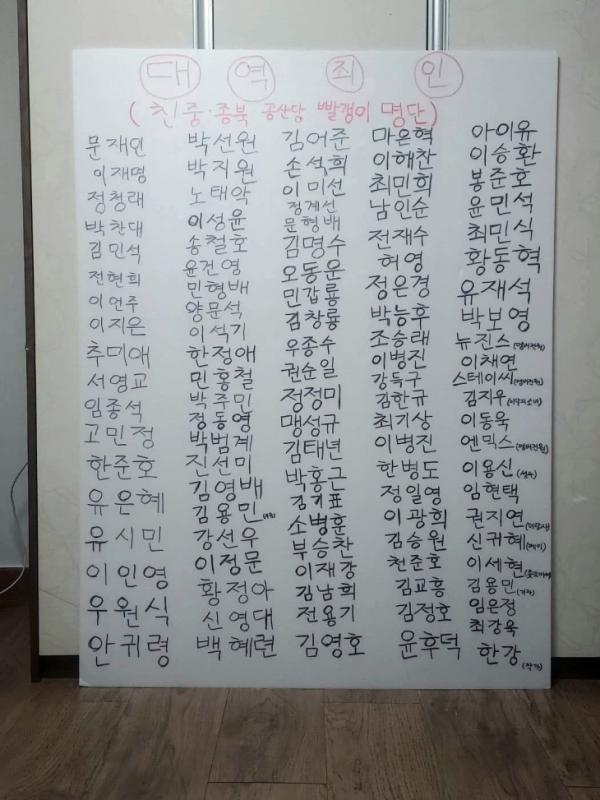 대 역 죄 인
(친중·종북 공산당 빨갱이 명단)
문재인
이재명
정청래
박찬대
김민석
전현희
이언주
이지은
추미애
서영교
임종석
고민정
한준호
유은혜
유시민
이인영
우원식
안귀령
박선원
박지원
노태악
이성윤
송철호
윤건영
민형배
양문석
이석기
한정애
민홍철
박주민
정동영
박범계
진선미
김영배
김용민
강선우
이정문
황정아
신영대
백혜련
김어준
손석희
이미선
정계선
문형배
김명수
오동운
민갑룡
김창룡
우종수
권순일
정정미
맹성규
김태년
박홍근
김기표
소병훈
부승찬
이재강
김남희
전용기
김영호
마은혁
이해찬
최민희
남인순
전재수
허영
정은경
박능후
조승래
이병진
강득구
김한규
최기상
이병진
한병도
정일영
이광희
김승원
천준호
김교흥
김정호
윤후덕
아이유
이승환
봉준호
윤민석
최민식
황동혁
유재석
박보영
뉴진스(멤버전원)
이채연
스테이씨(멤버전원)
김지우
이동욱
엔믹스(멤버전원)
이용신(성우)
임현택
권지연
신귀혜
이세현
김용민(기자)
임은정
최강욱
한강(작가)